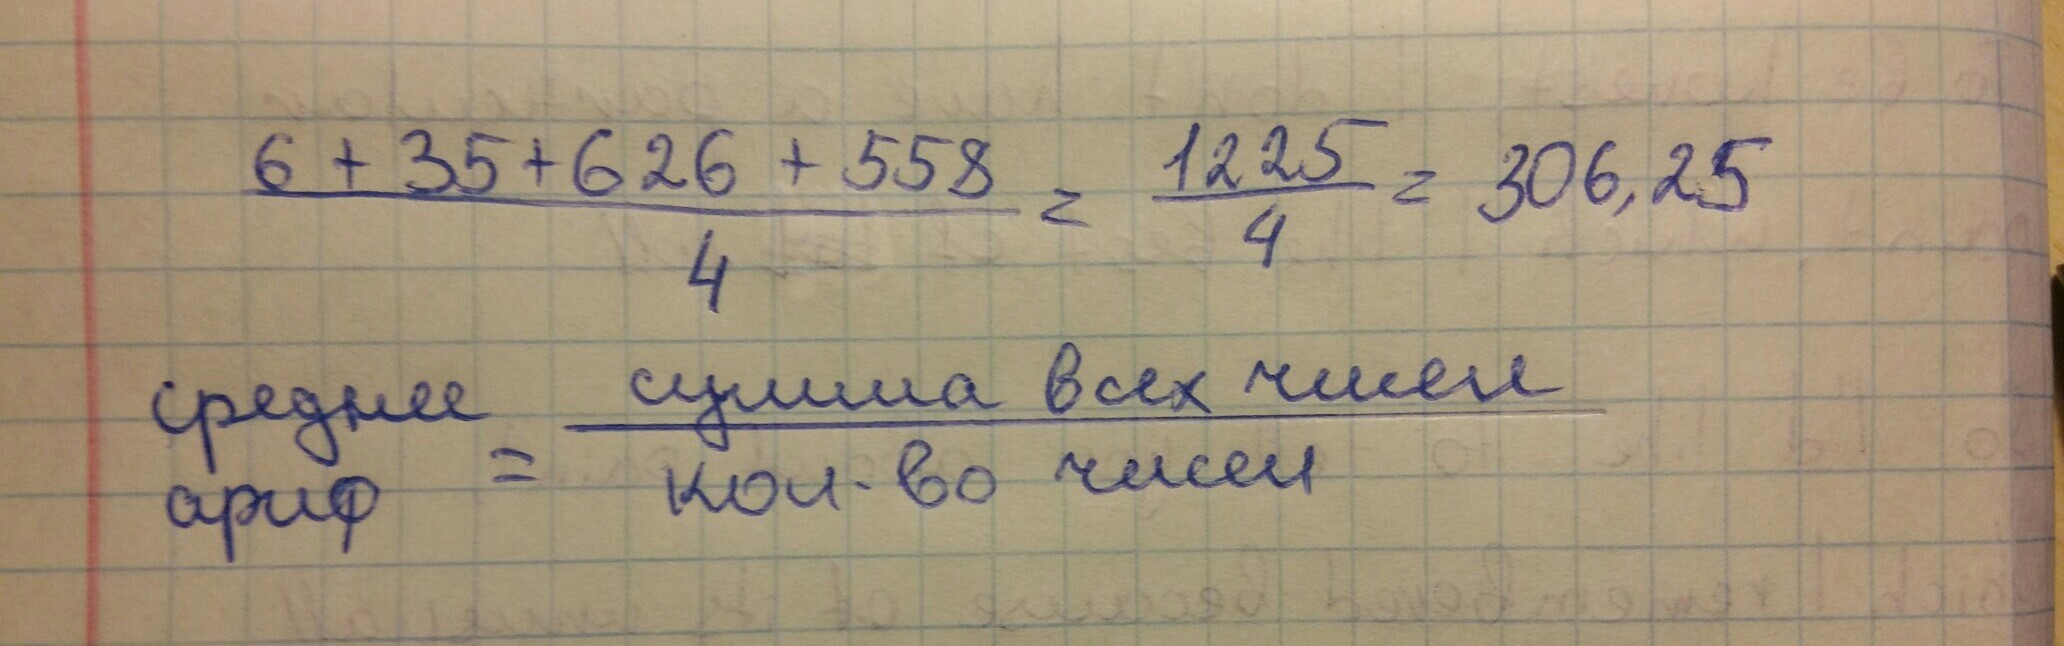 6 + 35 + 626 + 558 / 4 = 1225 / 4 = 306,25
среднее ариф = сумма всех чисел / кол-во чисел